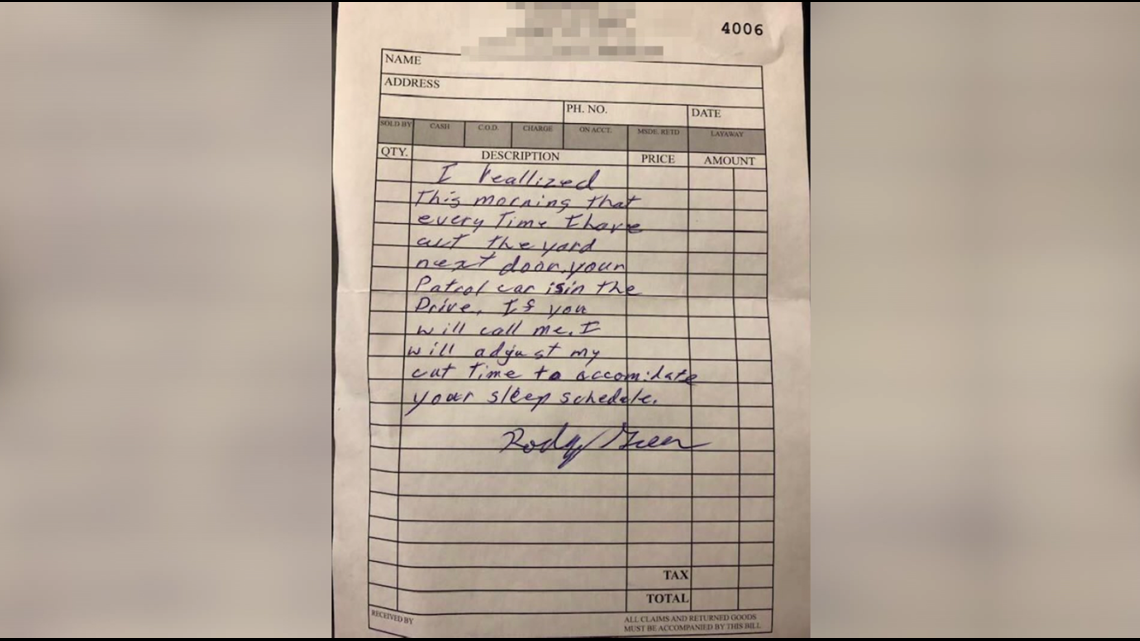 4006
NAME
ADDRESS
PH. NO. DATE
SOLD BY CASH C.O.D. CHARGE ON ACCT. MSDE. RETD LAYAWAY
QTY. DESCRIPTION PRICE AMOUNT
I reallized
This morning that
every Time I have
cut the yard
next door, your
Patrol car is in the
Drive, If you
will call me, I
will adjust my
cut Time to accomidate
your sleep schedele.
Rody Green
TAX
TOTAL
RECEIVED BY
ALL CLAIMS AND RETURNED GOODS
MUST BE ACCOMPANIED BY THIS BILL